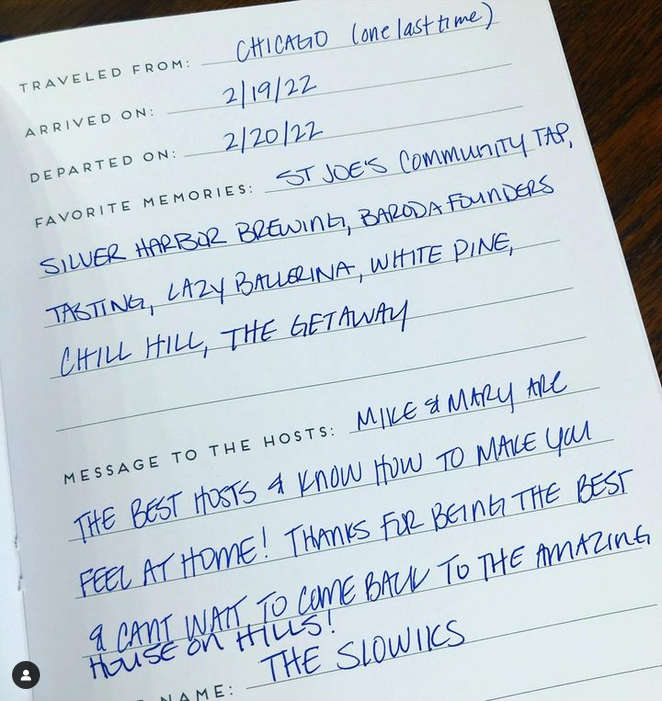 TRAVELED FROM: CHICAGO (one last time)
ARRIVED ON: 2/19/22
DEPARTED ON: 2/20/22
FAVORITE MEMORIES: ST JOE'S COMMUNITY TAP,
SILVER HARBOR BREWING, BARODA FOUNDERS
TASTING, LAZY BALLERINA, WHITE PINE,
CHILL HILL, THE GETAWAY
MESSAGE TO THE HOSTS: MIKE & MARY ARE
THE BEST HOSTS & KNOW HOW TO MAKE YOU
FEEL AT HOME! THANKS FOR BEING THE BEST
& CANT WAIT TO COME BACK TO THE AMAZING
HOUSE ON HILLS!
NAME: THE SLOWIKS